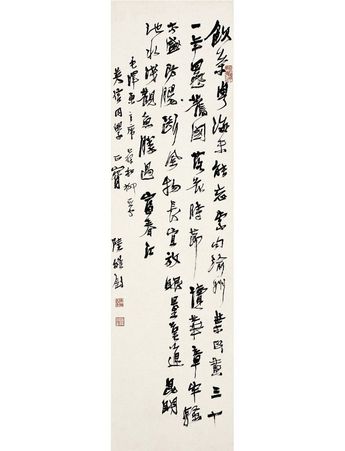 飲茶粵海未能忘索句渝州葉正黃三十
一年還舊國落花時節讀華章牢騷
太盛防腸斷風物長宜放眼量莫道昆明
池水淺觀魚勝過富春江
毛澤東主席和柳亞子
同學 陸維釗